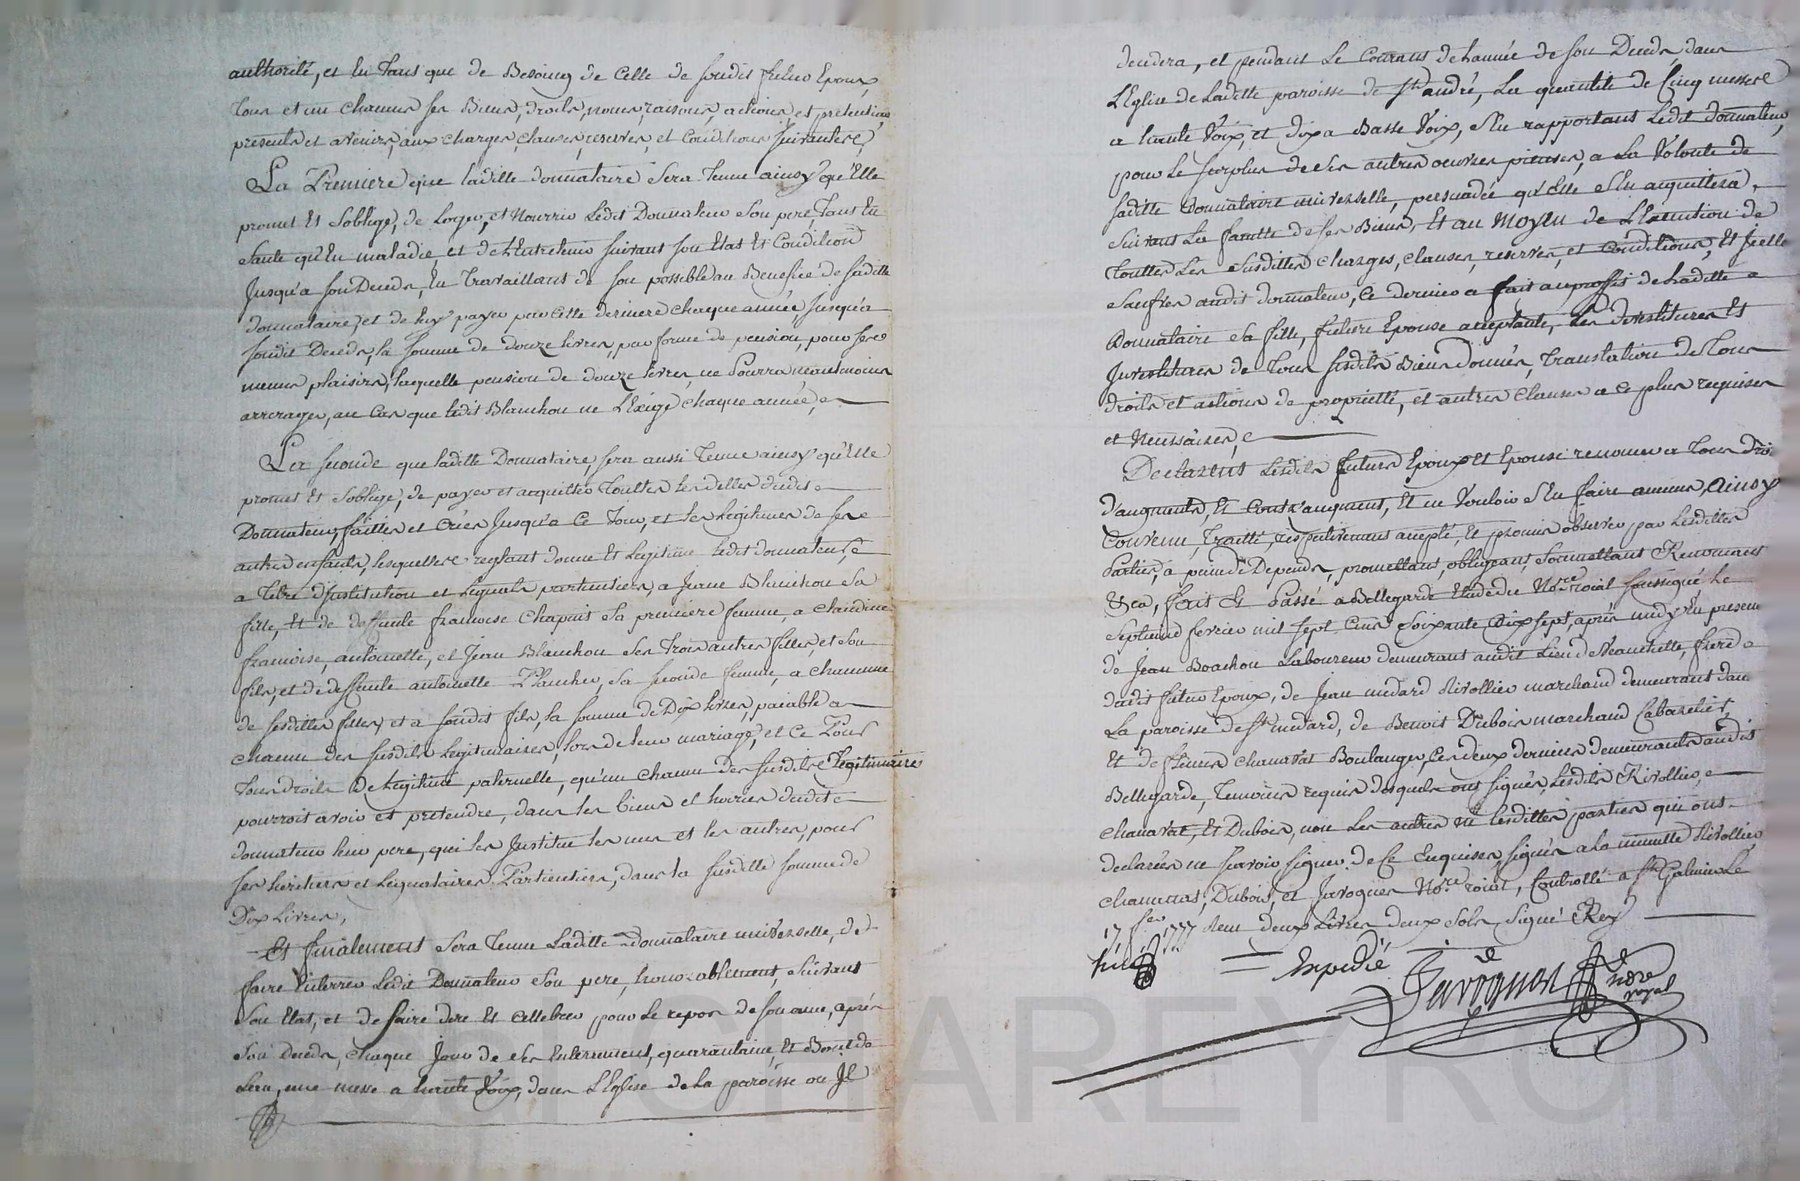 authorité, et en tant que de Besoing de Celle de sondit futur Epoux,
tous et un chacuns ses Biens, droits, noms, raisons, actions, et pretentions
presents et avenirs, aux charges, clauses, reserves, et Conditions suivantes,
La Premiere que laditte donnataire sera tenue ainsy qu'Elle
promet Et s'oblige, de loger, et Nourrir Ledit Donnateur son pere, tant En
santé qu'En maladie, et de l'Entretenir suivant son Etat Et Condition
Jusqu'a son Deceds, En travaillant de son possible au Benefice de saditte
donnataire, et de luy payer par cette derniere chaque année, Jusqu'a
sondit Deceds, la somme de douze livres, par forme de pension, pour ses
menus plaisirs, laquelle pension de douze livres, ne Pourra neantmoins
arrerager, au cas que ledit Blanchou ne L'Exige chaque année,
La seconde que laditte Donnataire, sera aussi tenue ainsy qu'Elle
promet Et s'oblige, de payer et acquitter touttes les dettes dudit
Donnateur, faittes et crées Jusqu'a Ce Jour, et les Legitimes de ses
autres enfants, lesquelles restant donne Et Legitime ledit donnateur,
a titre d'Institution et Leguats particuliers, a Jeanne Blanchou sa
fille, Et de deffunte françoise Chapuit sa premiere femme, a Claudine
françoise, antoinette, et Jean Blanchou ses trois autres filles, et son
fils, et de deffunte antoinette Planchu, sa seconde femme, a chacunne
de sesdittes filles, et a sondit fils, la somme de Dix livres, paiable a
chacun des susdits Legitimaires, lors de leur mariage, et Ce Pour
tous droits De Legitime paternelle, qu'un chacun des susdits Legitimaires
pourroit avoir et pretendre, dans les biens et hoiries dudit
donnateur leur pere, qui les Institue les uns et les autres, pour
ses héritiers et Leguataires Particuliers, dans la susditte somme de
Dix Livres,
Et finalement sera tenue Laditte donnataire universelle, de
faire Enterrer Ledit Donnateur son pere, honorablement, suivant
son Etat, et de faire dire Et cellebrer pour le repos de son ame, après
son Deceds, chaque Jour de ses Enterrement, quarantaine, Et Bout de
Lan, une messe a haute Voix, dans L'Eglise de La paroisse ou Il
decedera, et pendant Le Courant de l'année de son Deceds, dans
L'Eglise de Laditte paroisse de St. andré, La quantité de Cinq messes
a haute Voix, et dix a Basse Voix, s'En rapportant Ledit donnateur,
pour Le surplus de ses autres oeuvres pieuses, a La Volonté de
saditte Donnataire universelle, persuadée qu'Elle s'En acquittera
suivant La faculté de ses Biens, Et au Moyen de L'Execution de
touttes Les susdittes charges, clauses, reserves, et conditions, Et Icelle
saufves audit donnateur, Ce dernier a fait au proffit de Laditte
Donnataire sa fille, future Epouse acceptante, Les devestitures Et
Investitures de tous susdits Biens donnés, translation de tous
droits et actions de proprietté, et autres Clauses a Ce plus requises
et Necessaires,
Declarent Lesdits futurs Epoux Et Epouse renoncer a tous droits
d'augments, Et Contr'augment, Et ne Vouloir s'En faire aucuns, ainsy
Convenu, traitté, respectivement accepté, Et promis observer par Lesdittes
Parties, a peine de Depends, promettant, obligeant soumettant Renoncant
&ca, fait Et Passé a Bellegarde Etude du Nore. roial soussigné Le
septieme fevrier mil sept Cens soixante Dix sept, après midy En presence
de Jean Boachou Laboureur demeurant audit Lieu de Neauchette, frere
dudit futur Epoux, de Jean medard Rivollier marchand demeurant dans
La paroisse de St. medard, de Benoit Dubois marchand Cabaretier,
Et de Etienne Chanavat Boulanger, Ces deux derniers demeurants audit
Bellegarde, temoins requis desquels ont signés, Lesdits Rivollier,
Chanavat, Et Dubois, non Les autres ni Lesdittes parties qui ont
declarées ne scavoir signer de Ce Enquises, signés a la minutte Rivollier
Chanavat, Dubois, et Javogues Nore. roial, Controllé a St. Galmier Le
17 fer. 1777 Reçu deux Livres deux sols, signé Rey
Expedié
Javogues
Nore royal